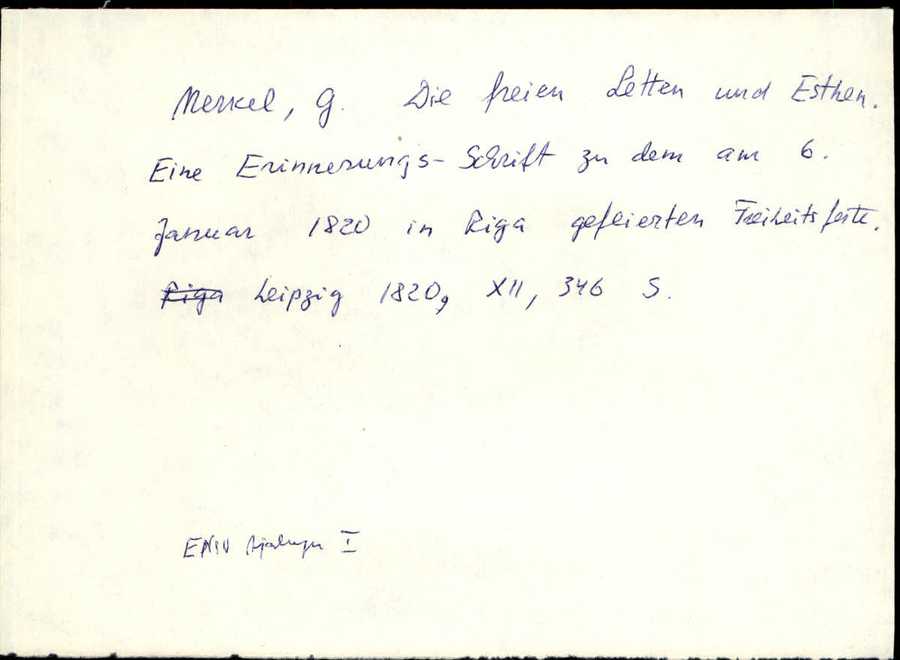 Merkel, G. Die freien Letten und Esthen.
Eine Erinnerungs-Schrift zu dem am 6.
Januar 1820 in Riga gefeierten Freiheitsfeste.
Riga Leipzig 1820, XII, 346 S.
I